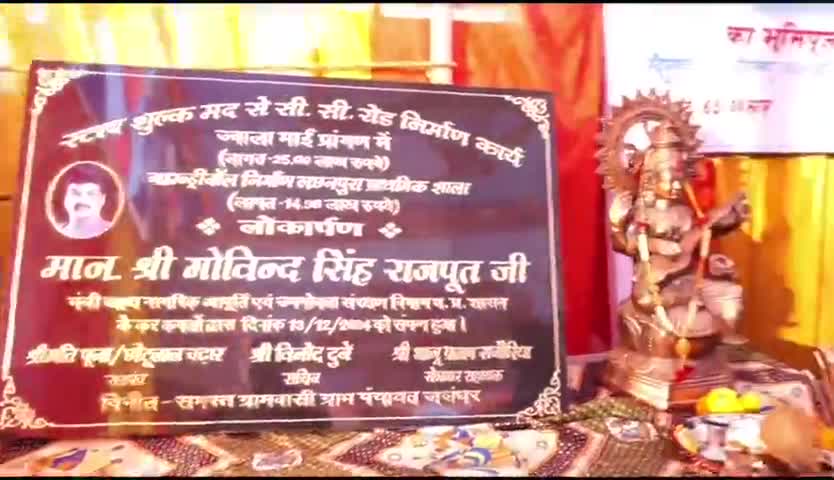 स्टाम्प शुल्क मद से सी. सी. रोड निर्माण कार्य
ज्वाला माई प्रांगण में
(लागत-25.00 लाख रुपये)
बाउन्ड्रीवॉल निर्माण प्राथमिक शाला
(लागत-14.98 लाख रुपये)
लोकार्पण
मान. श्री गोविन्द सिंह राजपूत जी
मंत्री खाद्य नागरिक आपूर्ति एवं उपभोक्ता संरक्षण विभाग म. प्र. शासन
के कर कमलों द्वारा दिनांक 13/12/2024 को संपन्न हुआ।
श्रीमति पूजा/छोटूलाल श्री विनोद दुबे श्री
सरपंच सचिव रोजगार सहायक
विनीत - समस्त ग्रामवासी ग्राम पंचायत
का भूमिपूज